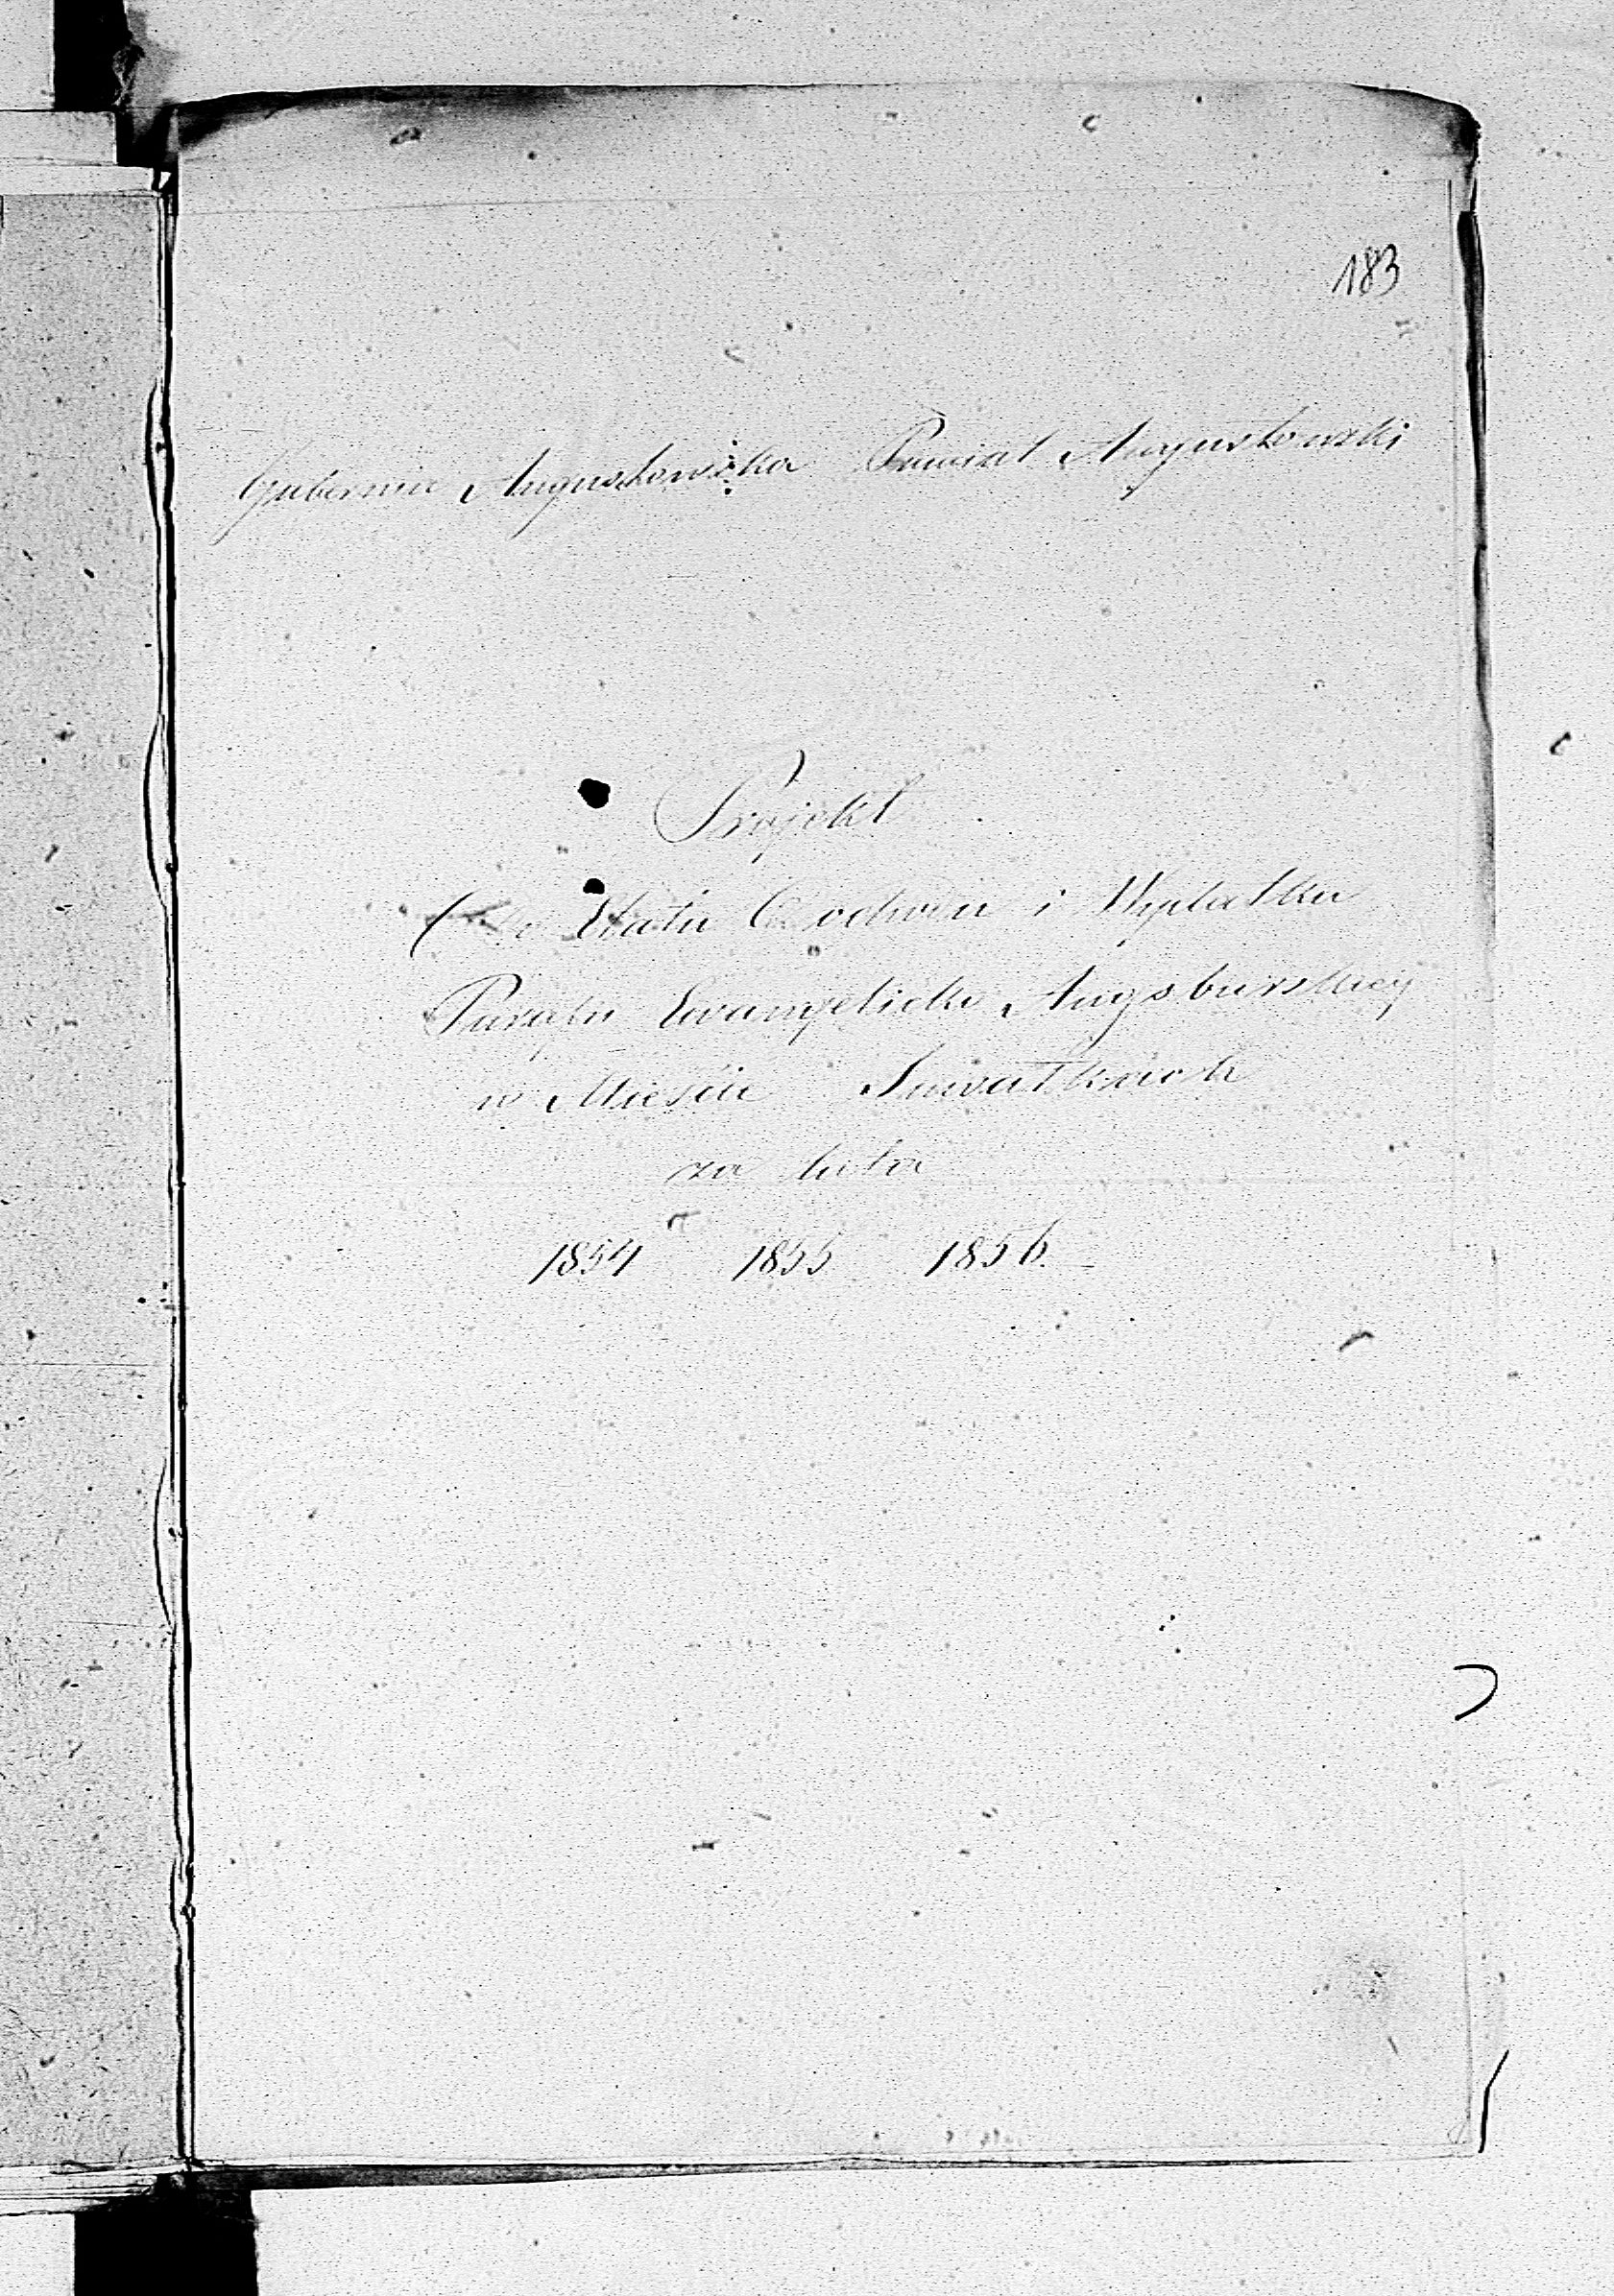 183
Gubernia Augustowska Powiat Augustowski
Projekt
do Etatu Dochodu i Wydatku
Parafii Ewangelicko Augsburskiey
w Mieście Suwałkach
za lata
1854 1855 1856.